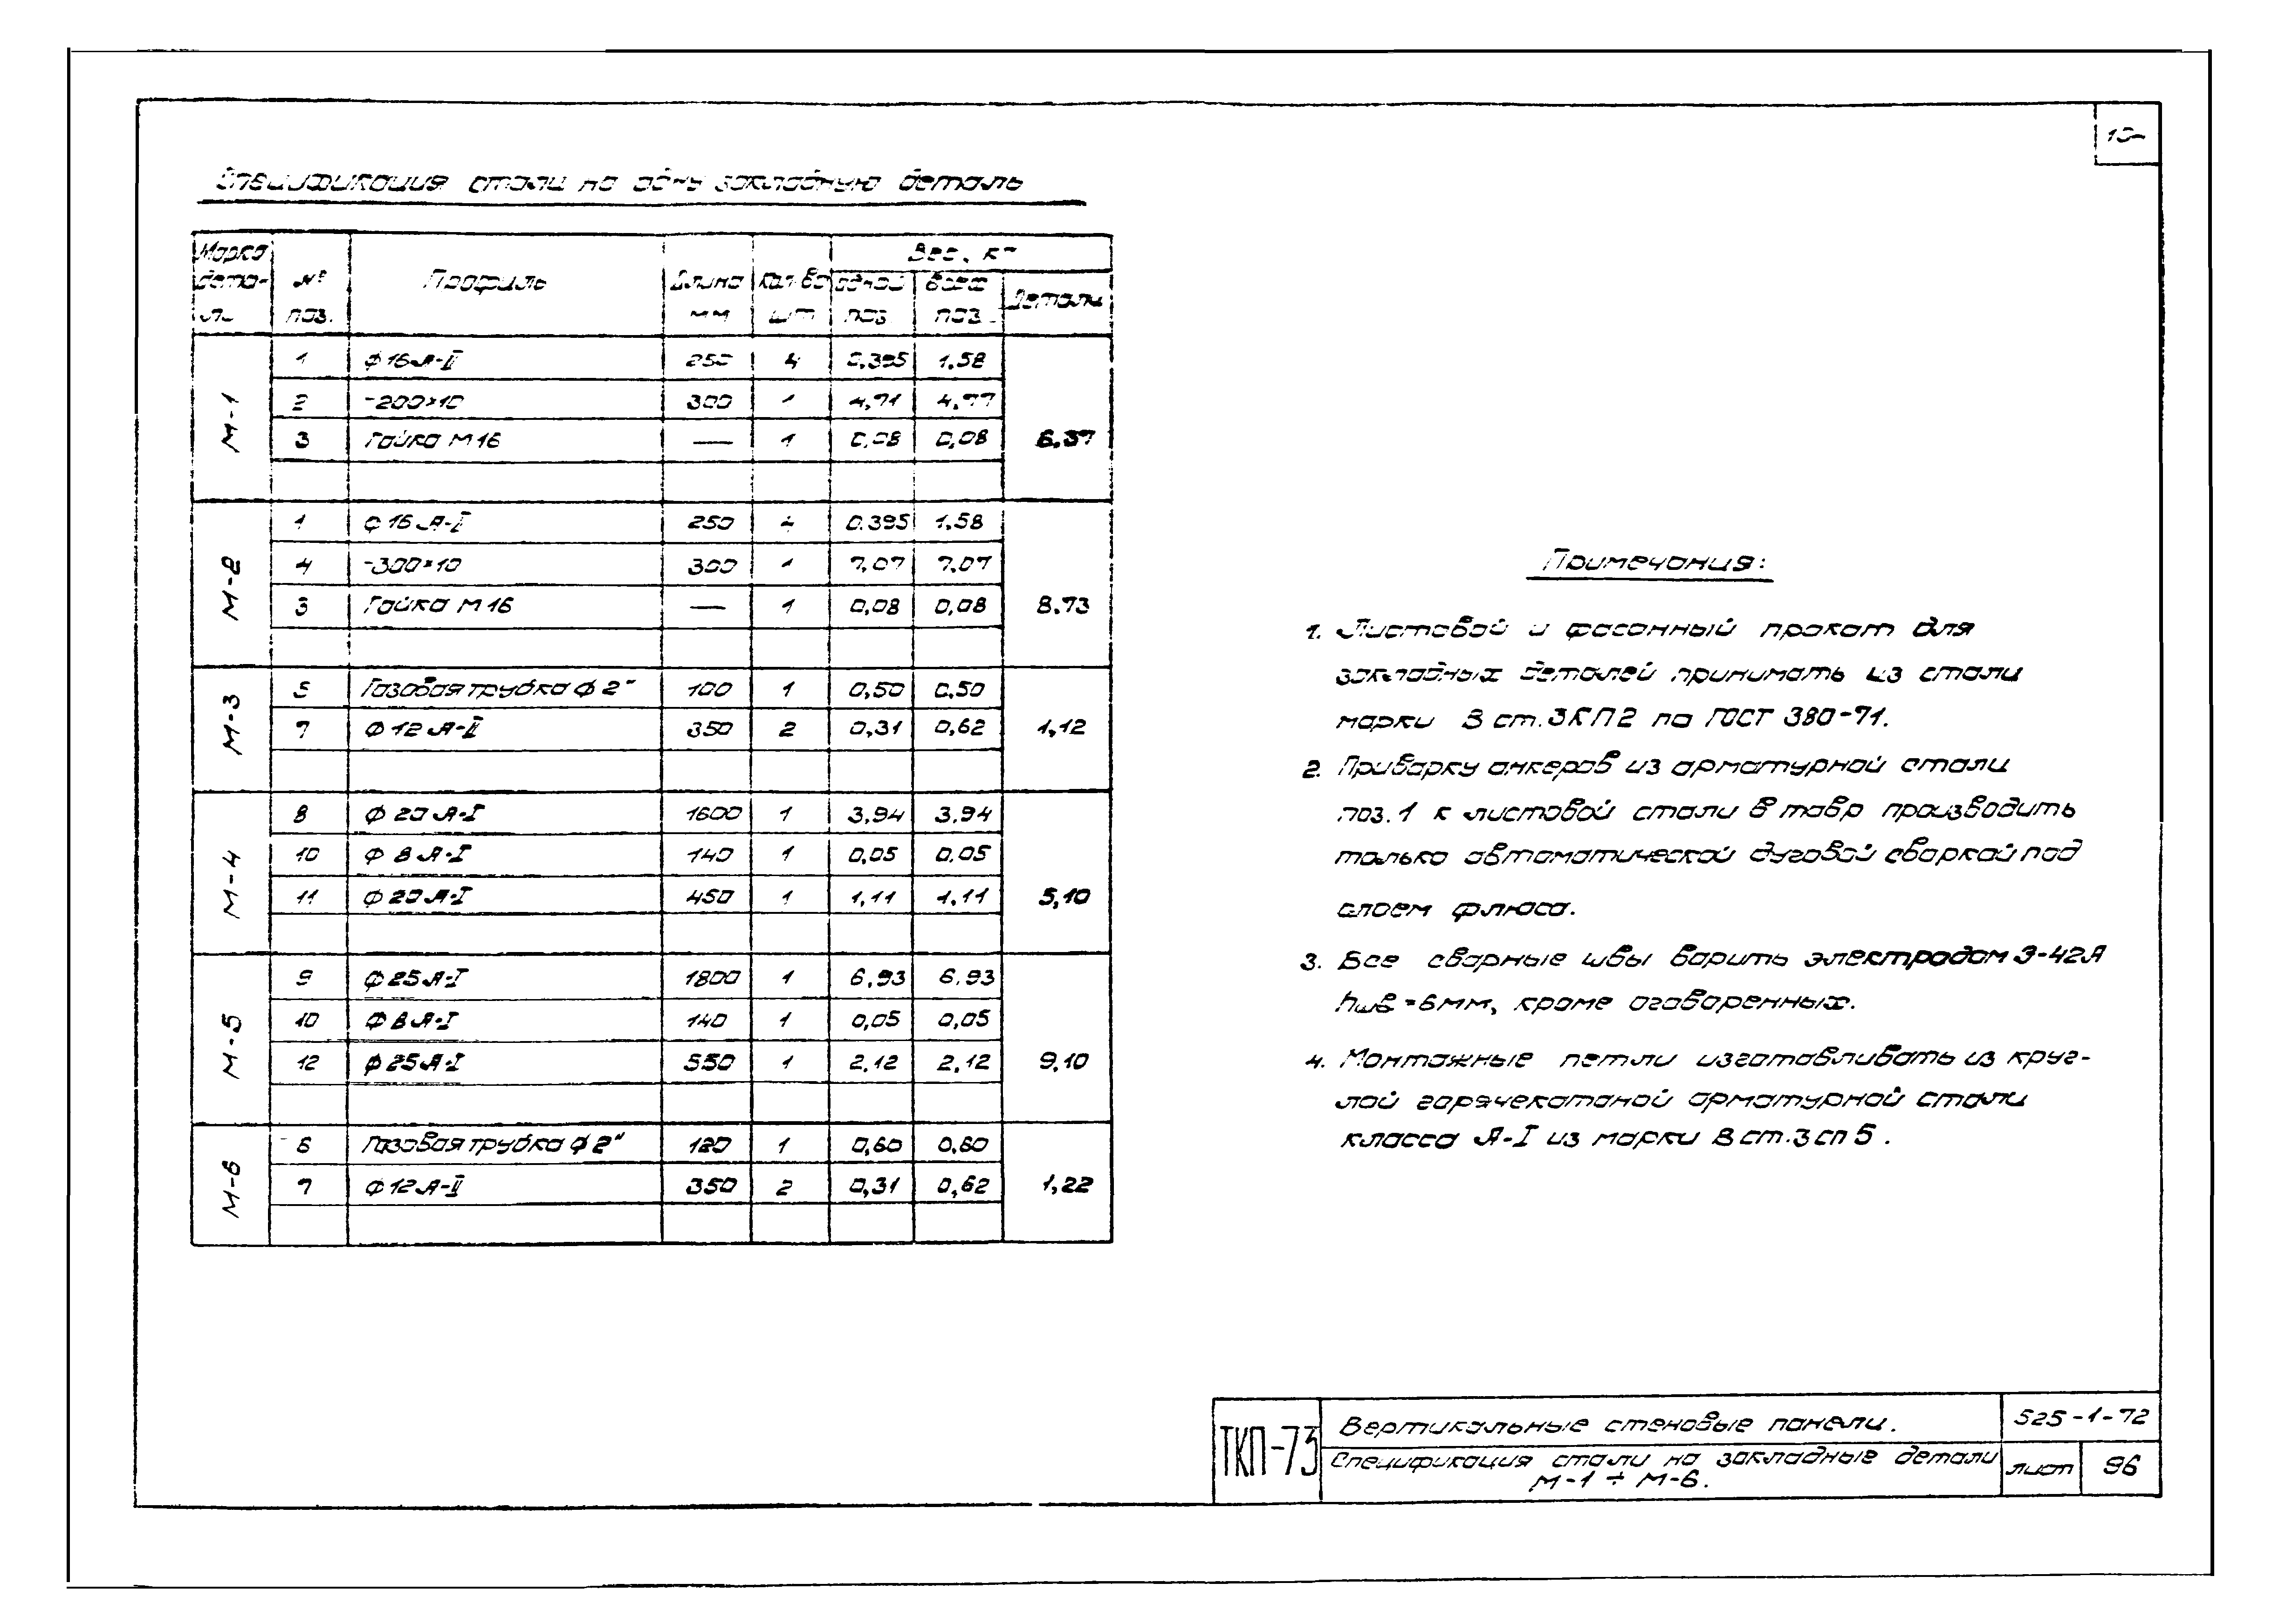 Спецификация стали на одну закладную деталь
Марка дета-ли | № поз. | Профиль | Длина мм | Кол-во шт | Вес, кг
одной поз | всех поз. | Детали
М-1
1 | Ф16А-II | 250 | 4 | 0,395 | 1,58
2 | -200×10 | 300 | 1 | 4,71 | 4,77
3 | Гайка М16 | — | 1 | 0,08 | 0,08 | 6.37
М-2
1 | Ф16А-I | 250 | 4 | 0.395 | 1,58
4 | -300×10 | 300 | 1 | 7,07 | 7,07
3 | Гайка М16 | — | 1 | 0,08 | 0,08 | 8.73
М-3
5 | Газовая трубка ф 2" | 100 | 1 | 0,50 | 0,50
7 | Ф12А-II | 350 | 2 | 0,31 | 0,62 | 1,12
М-4
8 | Ф20А-I | 1600 | 1 | 3,94 | 3,94
10 | Ф8А-I | 140 | 1 | 0,05 | 0,05
11 | Ф20А-I | 450 | 1 | 1,11 | 1,11 | 5,10
М-5
9 | Ф25А-I | 1800 | 1 | 6,93 | 6,93
10 | Ф8А-I | 140 | 1 | 0,05 | 0,05
12 | Ф25А-I | 550 | 1 | 2,12 | 2,12 | 9,10
М-6
6 | Газовая трубка ф 2" | 120 | 1 | 0,60 | 0,60
7 | Ф12А-II | 350 | 2 | 0,31 | 0,62 | 1,22
Примечания:
1. Листовой и фасонный прокат для
закладных деталей принимать из стали
марки В ст.3КП2 по ГОСТ 380-71.
2. Приварку анкеров из арматурной стали
поз.1 к листовой стали в тавр производить
только автоматической дуговой сваркой под
слоем флюса.
3. Все сварные швы варить электродом Э-42А
hшв=6мм, кроме оговоренных.
4. Монтажные петли изготавливать из круг-
лой горячекатаной арматурной стали
класса А-I из марки В ст.3 сп 5.
ТКП-73
Вертикальные стеновые панели.
525-1-72
Спецификация стали на закладные детали
М-1 ÷ М-6.
лист 96